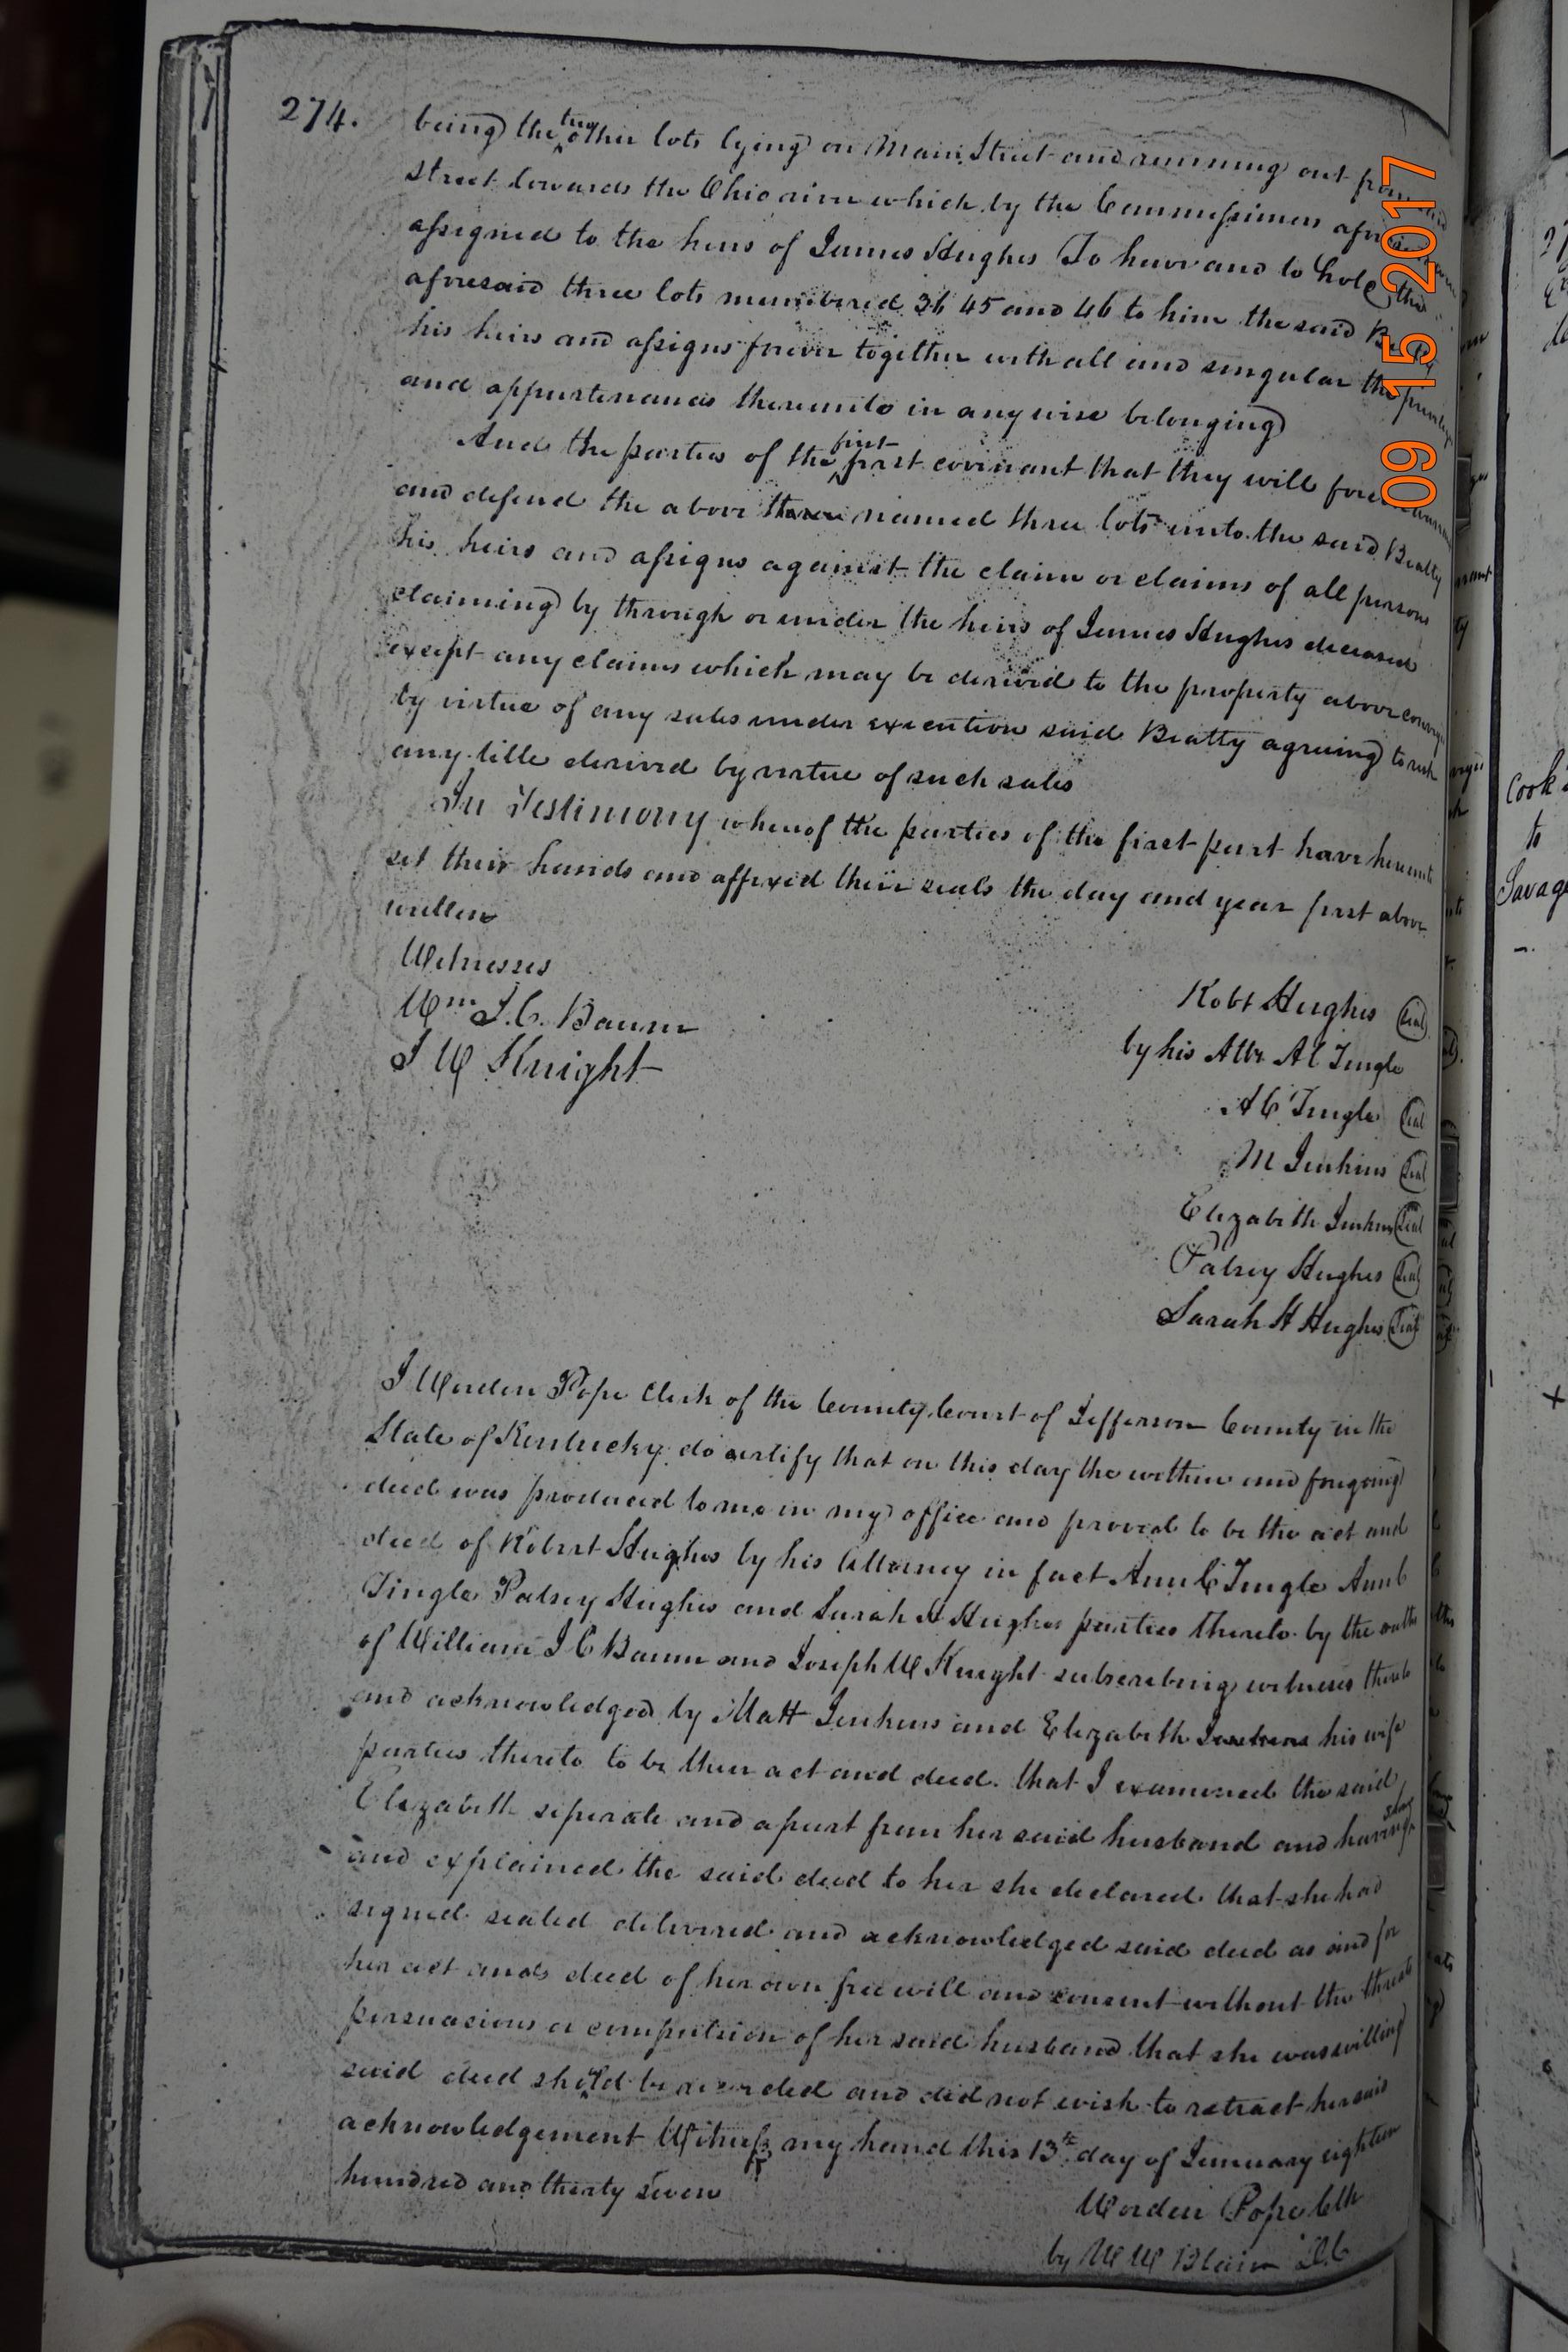 274.
being the two other lots lying on Main Street and running out from said
street towards the Ohio river which by the Commissioners
assigned to the heirs of James Hughes To have and to hold the
aforesaid three lots numbered 36 45 and 46 to him the said Beatty
his heirs and assigns forever together with all and singular the
and appurtenances thereunto in any wise belonging
And the parties of the first part covenant that they will forever
and defend the above named three lots unto the said Beatty
his heirs and assigns against the claim or claims of all persons
claiming by through or under the heirs of James Hughes deceased
except any claims which may be derived to the property above
by virtue of any sales under execution said Beatty agreeing to risk
any title derived by virtue of such sales
In Testimony whereof the parties of the first part have hereunto
set their hands and affixed their seals the day and year first above
written
Witnesses
Wm I. C. Baum
J W Knight
Robt Hughes Seal
by his Atty A C Tingle
A C Tingle Seal
M Jenkins Seal
Elizabeth Jenkins Seal
Patsey Hughes Seal
Sarah H Hughes Seal
I Worden Pope Clerk of the County Court of Jefferson County in the
State of Kentucky do certify that on this day the within and foregoing
deed was produced to me in my office and proved to be the act and
deed of Robert Hughes by his Attorney in fact Ann C Tingle Ann C
Tingle Patsey Hughes and Sarah H Hughes parties thereto by the oaths
of William I C Baum and Joseph W Knight subscribing witnesses thereto
and acknowledged by Matt Jenkins and Elizabeth Jenkins his wife
parties thereto to be their act and deed. that I examined the said
Elizabeth seperate and apart from her said husband and having shewn
and explained the said deed to her she declared that she had
signed sealed delivered and acknowledged said deed as and for
her act and deed of her own free will and consent without the threats
persuasions or compulsion of her said husband that she was willing
said deed should be recorded and did not wish to retract her said
acknowledgement Witness my hand this 13th day of January eighteen
hundred and thirty seven
Worden Pope Clk
by W W Blain D.C
Cook
to
Savage
09 15 2017